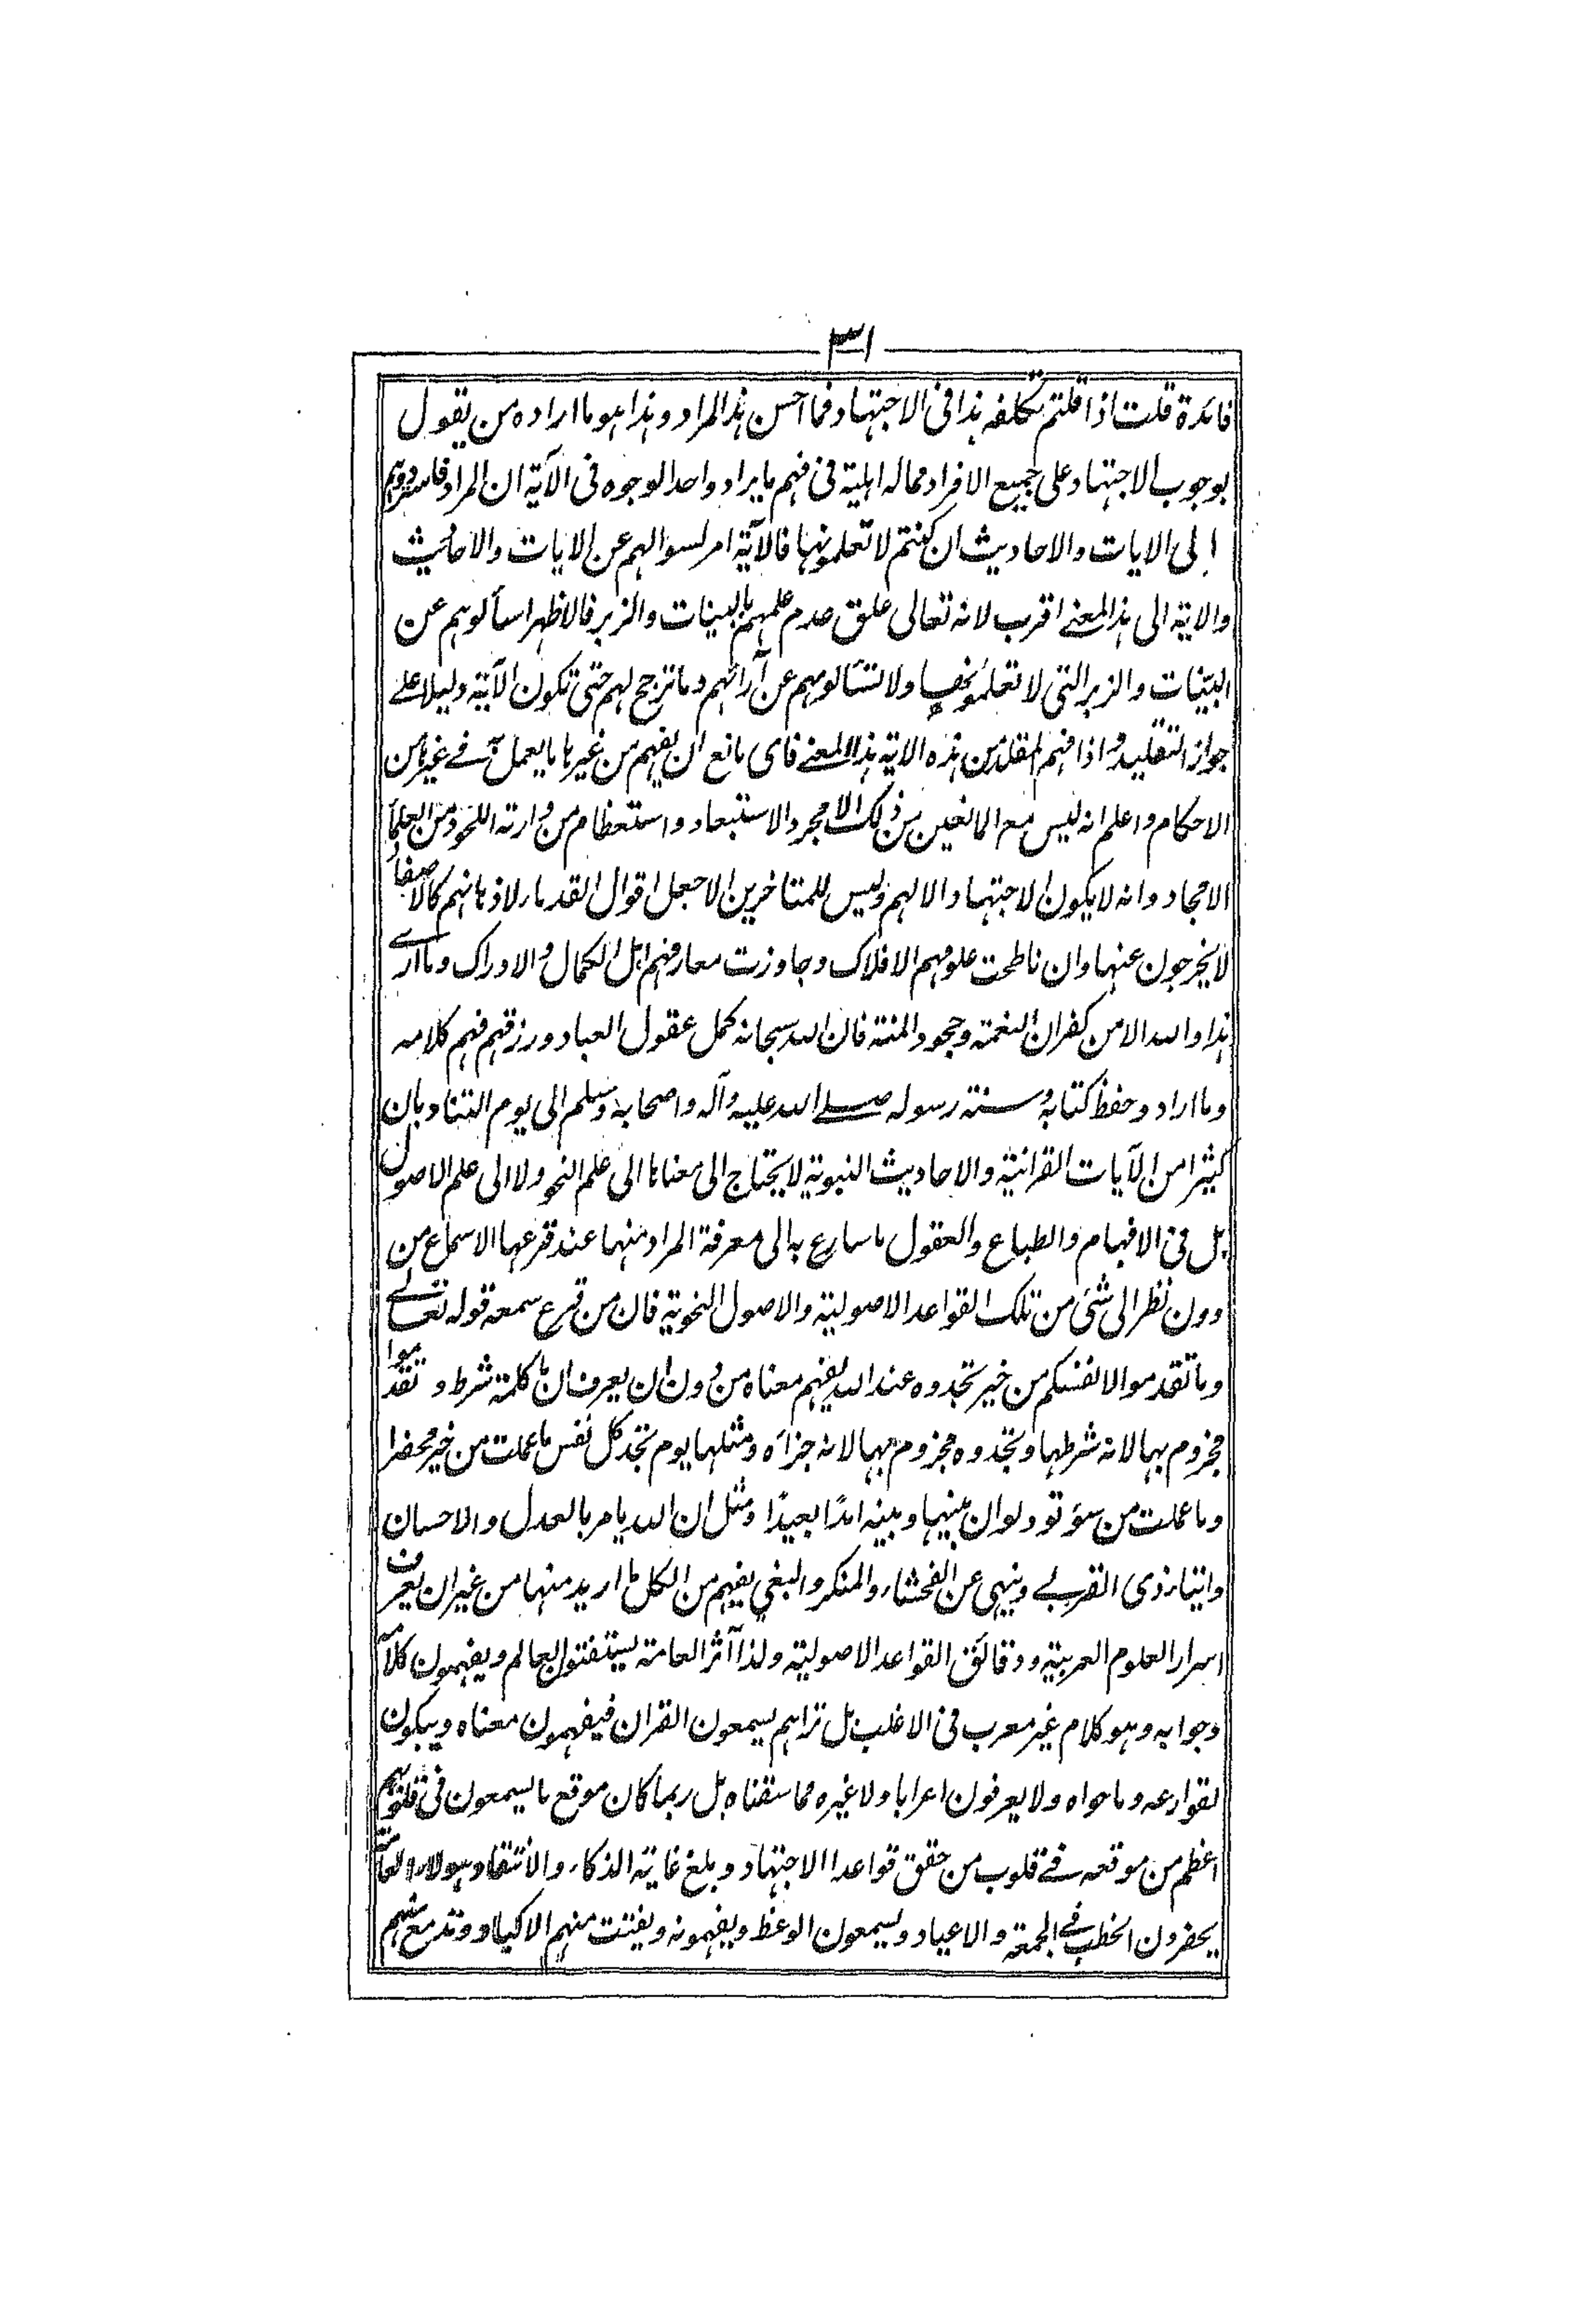 ٣١
فائدة قلت اذا قلتم تكلفه هذا فى الاجتهاد فما احسن هذا المراد وهذا هو ما اراده من يقول
بوجوب الاجتهاد على جميع الافراد مما له اهلية فى فهم ما يراد واحد الوجوه فى الآية ان المراد
الى الايات والاحاديث ان كنتم لا تعلمونها فالآية امر لسوالهم عن الايات والاحاديث
والاية الى هذا المعنى اقرب لانه تعالى علق عدم علمهم بالبينات والزبر فالاظهر اسألوهم عن
البينات والزبر التى لا تعلمونها ولا تسألوهم عن آرائهم وما ترجح لهم حتى تكون الآية دليلا على
جواز التقليد واذا فهم المقلد من هذه الاية هذا المعنى فاى مانع ان يفهم من غيرها ما يعمل به فى غيرها من
الاحكام واعلم انه ليس مع المانعين من ذلك الا مجرد الاستبعاد واستعظام من وارته اللحود من العلماء
الامجاد وانه لا يكون الاجتهاد الا لهم وليس للمتاخرين الا جعل اقوال القدماء لاذهانهم كالاصفاد
لا يخرجون عنها وان ناطحت علومهم الافلاك وجاوزت معارفهم اهل الكمال والادراك وما ارى
هذا والله الا من كفران النعمة وجحود المنة فان الله سبحانه كمل عقول العباد ورزقهم فهم كلامه
وما اراد وحفظ كتابه وسنة رسوله صلى الله عليه وآله واصحابه وسلم الى يوم التناد بان
كثيرا من الآيات القرانية والاحاديث النبوية لا يحتاج الى معناها الى علم النحو ولا الى علم الاصول
بل فى الافهام والطباع والعقول ما سارع به الى معرفة المراد منها عند قرعها الاسماع من
دون نظر الى شئ من تلك القواعد الاصولية والاصول النحوية فان من قرع سمعه قوله تعالى
وما تقدموا لانفسكم من خير تجدوه عند الله يفهم معناه من دون ان يعرف ان ما كلمة شرط وتقدموا
مجزوم بها لانه شرطها وتجدوه مجزوم بها لانه جزاءه ومثلها يوم تجد كل نفس ما عملت من خير محضرا
وما عملت من سوء تود لو ان بينها وبينه امدًا بعيدًا ومثل ان الله يامر بالعدل والاحسان
وايتاء ذى القربى وينهى عن الفحشاء والمنكر والبغي يفهم من الكل ما اريد منها من غير ان يعرف
اسرار العلوم العربية ودقائق القواعد الاصولية ولذا آثر العامة يستفتون العالم ويفهمون كلامه
وجوابه وهو كلام غير معرب فى الاغلب بل تراهم يسمعون القران فيفهمون معناه ويبكون
لقوارعه وما حواه ولا يعرفون اعرابا ولا غيره مما سقناه بل ربما كان موقع ما يسمعون فى قلوبهم
اعظم من موقعه فى قلوب من حقق قواعد الاجتهاد وبلغ غاية الذكاء والانتقاد وهولاء العامة
يحضرون الخطب فى الجمعة والاعياد ويسمعون الوعظ ويفهمونه ويفتت منهم الاكباد وتدمع منهم